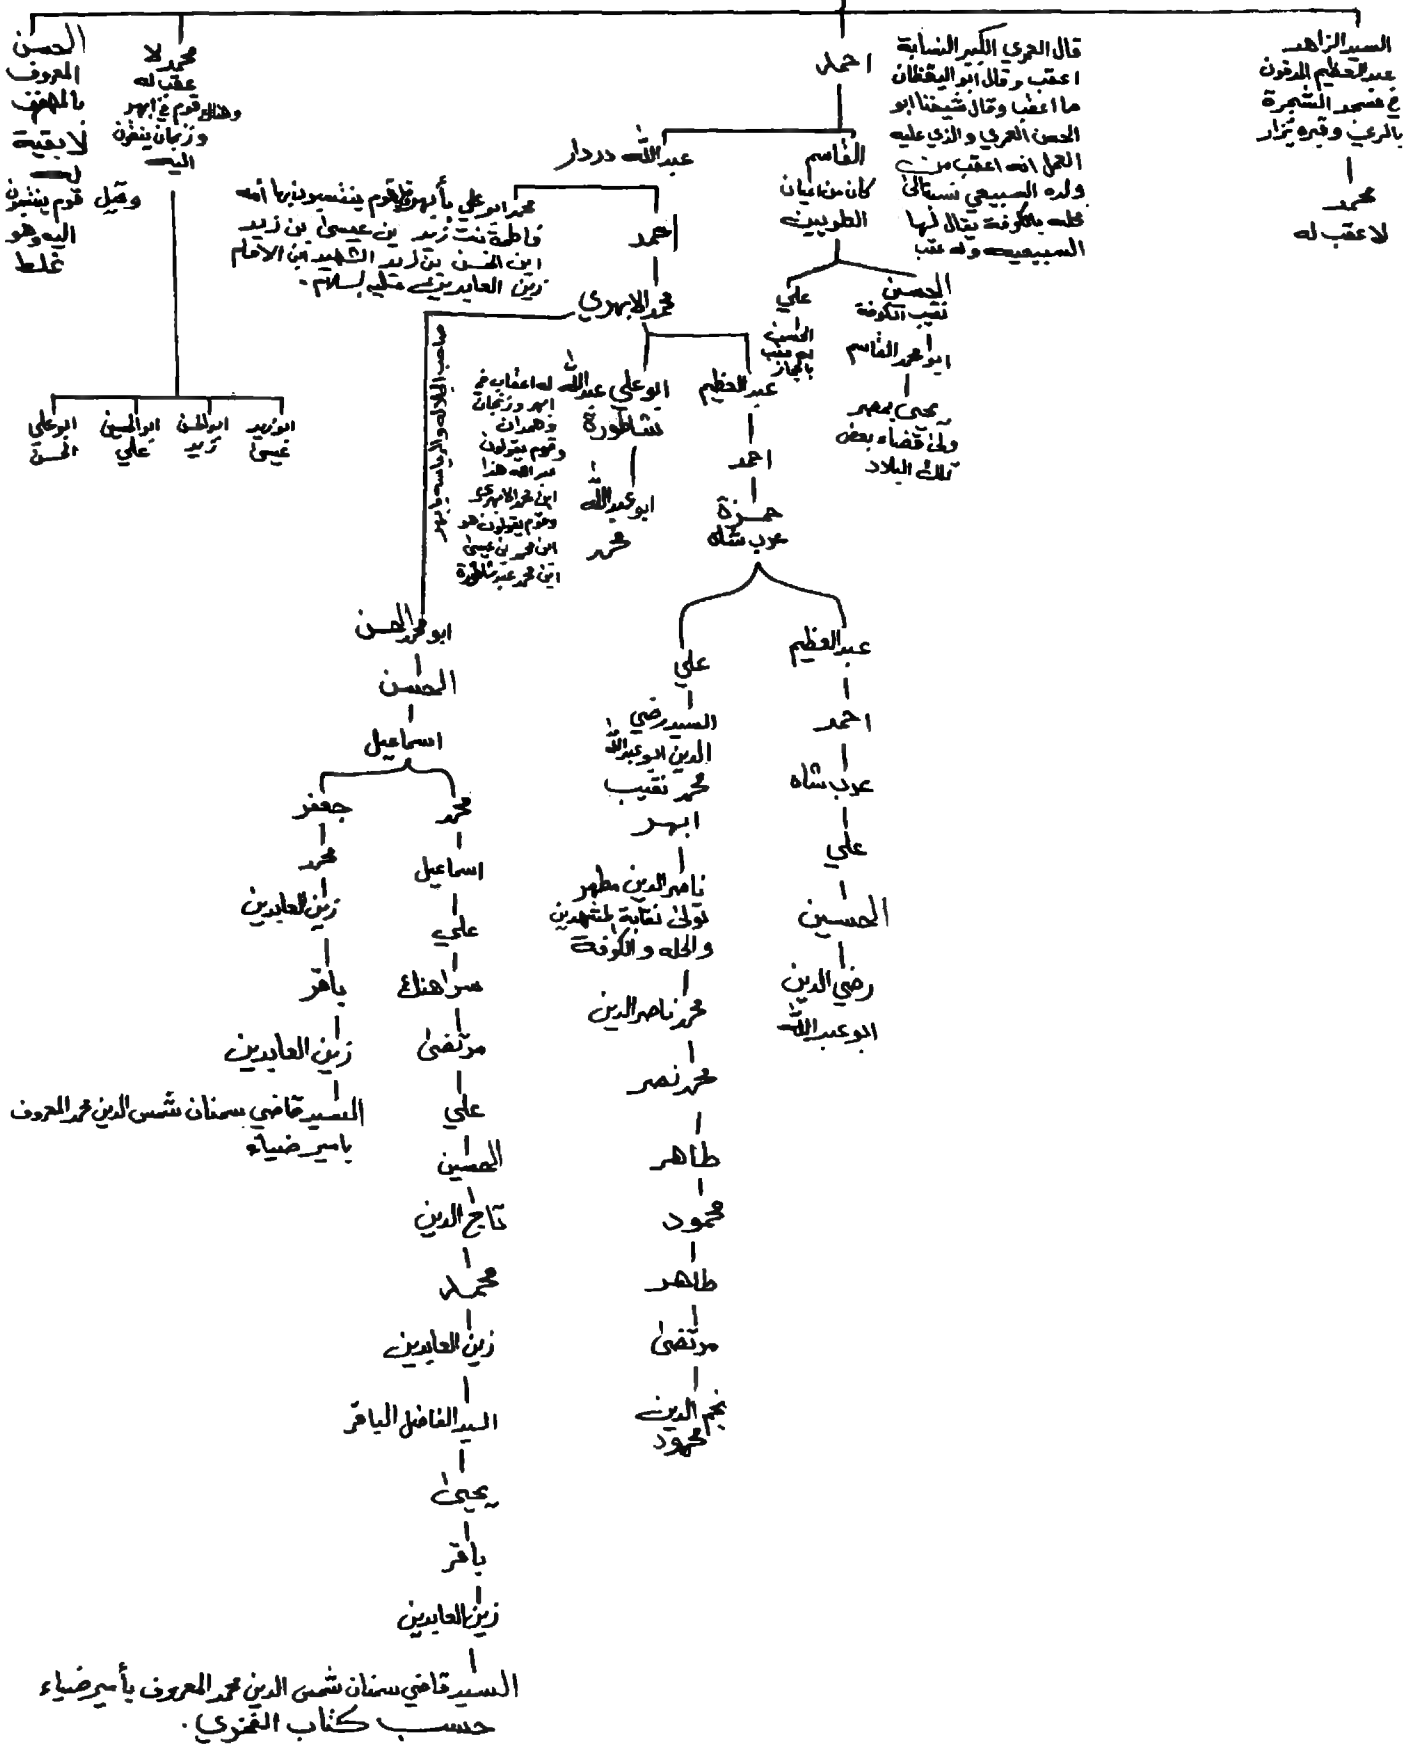 السيد الزاهد
عبد العظيم المدفون
في مسجد الشجرة
بالري وقبره يزار
محمد
لا عقب له
قال العمري الكبير النسابة
اعقب وقال ابو اليقظان
ما اعقب وقال شيخنا ابو
الحسن العمري والذي عليه
العمل انه اعقب من
ولده السبيعي نسبة الى
محله بالكوفة يقال لها
السبيعيه وله عقب
احمد
القاسم
كان من اعيان
الطويين
الحسين
نقيب الكوفة
ابو محمد القاسم
يحيى بمصر
ولي قضاء بعض
تلك البلاد
علي
الحسن
له عقب
بالحجاز
عبدالله دردار
احمد
محمد ابو علي بأبهر وله قوم ينتسبون بها أمه
فاطمة بنت زيد بن عيسى بن زيد
ابن الحسن بن زيد الشهيد ابن الامام
زين العابدين عليه السلام .
محمد الابهري
عبد العظيم
احمد
حمزة
عرب شاه
عبد العظيم
احمد
عرب شاه
علي
الحسين
رضي الدين
ابو عبدالله
علي
السيد رضي
الدين ابو عبدالله
محمد نقيب
ابهر
ناصر الدين مطهر
تولى نقابة المشهدين
والحله والكوفة
محمد ناصر الدين
محمد نصر
طاهر
محمود
طاهر
مرتضى
نجم الدين
محمود
ابو علي عبدالله
شاطورة
ابو عبدالله
محمد
له اعقاب في
ابهر وزنجان
وهمدان
وقوم يقولون
عبدالله هذا
ابن محمد الابهري
وقوم يقولون هو
ابن محمد بن عيسى
ابن محمد عبد شاطورة
صاحب الجلاله والرياسه بأبهر
ابو محمد الحسن
الحسن
اسماعيل
محمد
اسماعيل
علي
سراهنك
مرتضى
علي
الحسين
تاج الدين
محمد
زين العابدين
السيد الفاضل الباقر
يحيى
باقر
زين العابدين
السيد قاضي سمنان شمس الدين محمد المعروف بأمير ضياء
حسب كتاب الفخري .
جعفر
محمد
زين العابدين
باقر
زين العابدين
السيد قاضي سمنان شمس الدين محمد المعروف
بامير ضياء
محمد لا
عقب له
وهناك قوم في ابهر
وزنجان ينتمون
اليه
ابو زيد
عيسى
ابو الحسن
زيد
ابو الحسين
علي
ابو علي
الحسن
الحسن
المعروف
بالمهفف
لا بقية
له
وقيل قوم ينتمون
اليه وهو
غلط